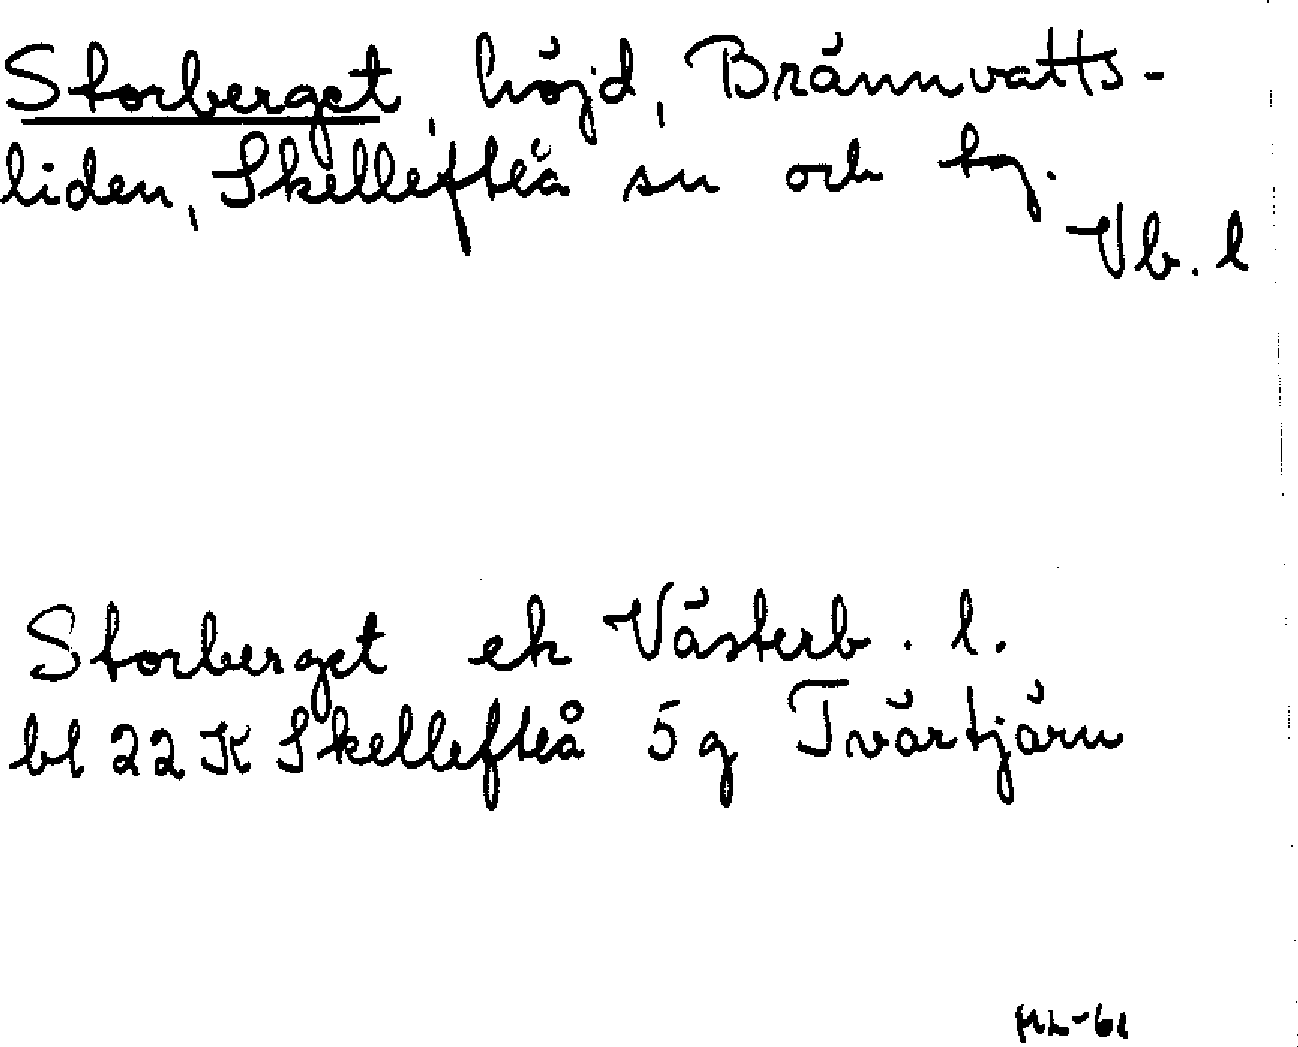 Storberget, höjd, Brännvatts-
liden, Skellefteå sn och tg.
Vb. l
Storberget ek Västerb. l.
bl 22 K Skellefteå 5 g Tvärtjärn
ML-61